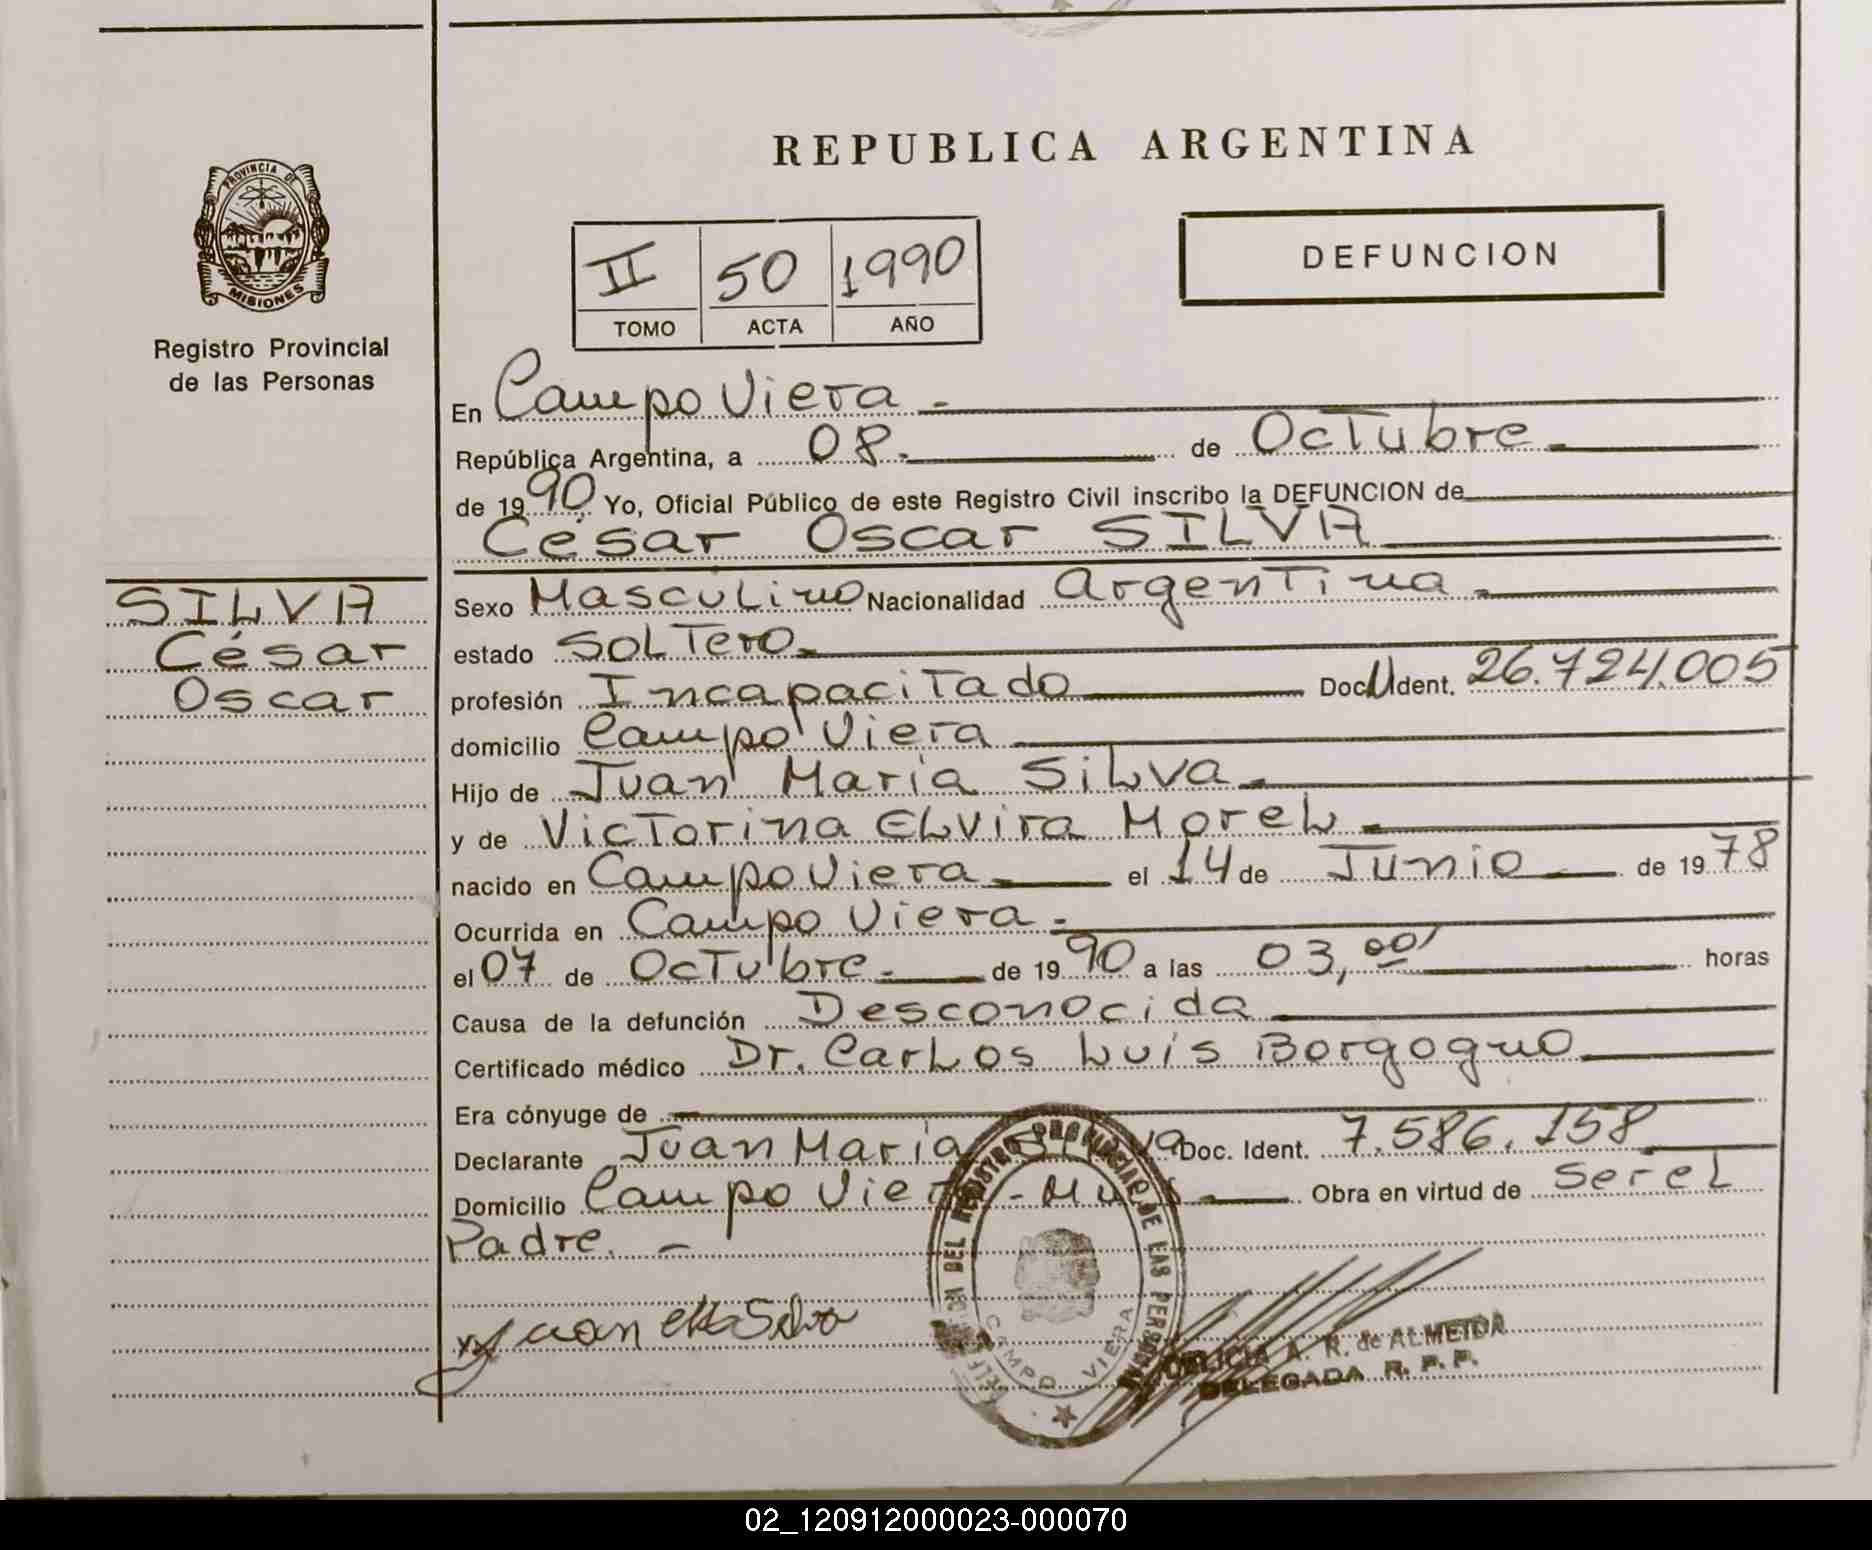 REPUBLICA ARGENTINA
PROVINCIA DE
MISIONES
Registro Provincial
de las Personas
II 50 1990
TOMO ACTA AÑO
DEFUNCION
SILVA
César
Oscar
En Campo Viera.-
República Argentina, a 08. de Octubre
de 1990 Yo, Oficial Público de este Registro Civil inscribo la DEFUNCION de
César Oscar SILVA
Sexo Masculino Nacionalidad Argentina
estado Soltero.
profesión Incapacitado Doc. Ident. 26.724.005
domicilio Campo Viera
Hijo de Juan María Silva.
y de Victorina Elvira Morel.
nacido en Campo Viera el 14 de Junio de 1978
Ocurrida en Campo Viera.
el 07 de Octubre. de 1990 a las 03,00' horas
Causa de la defunción Desconocida
Certificado médico Dr. Carlos Luís Borgogno
Era cónyuge de
Declarante Juan María Silva Doc. Ident. 7.586.158
Domicilio Campo Viera - Mnes Obra en virtud de Serel
Padre. -
Juan Ma Silva
DEL REGISTRO PROVINCIAL DE LAS PERSONAS
CAMPO VIERA
A. R. de ALMEIDA
DELEGADA R. P. P.
02_120912000023-000070